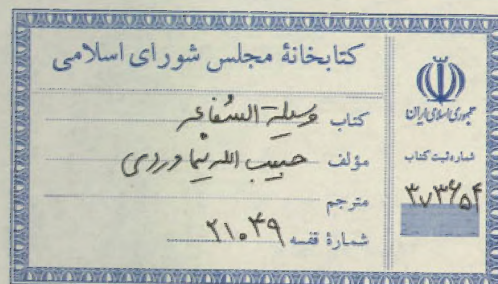 کتابخانهٔ مجلس شورای اسلامی
کتاب وسیلة الشفاعه
مؤلف حبیب الله
مترجم
شمارهٔ قفسه ۲۱۰۴۹
جمهوری اسلامی ایران
شماره ثبت کتاب
۳۷۳۶۵۴